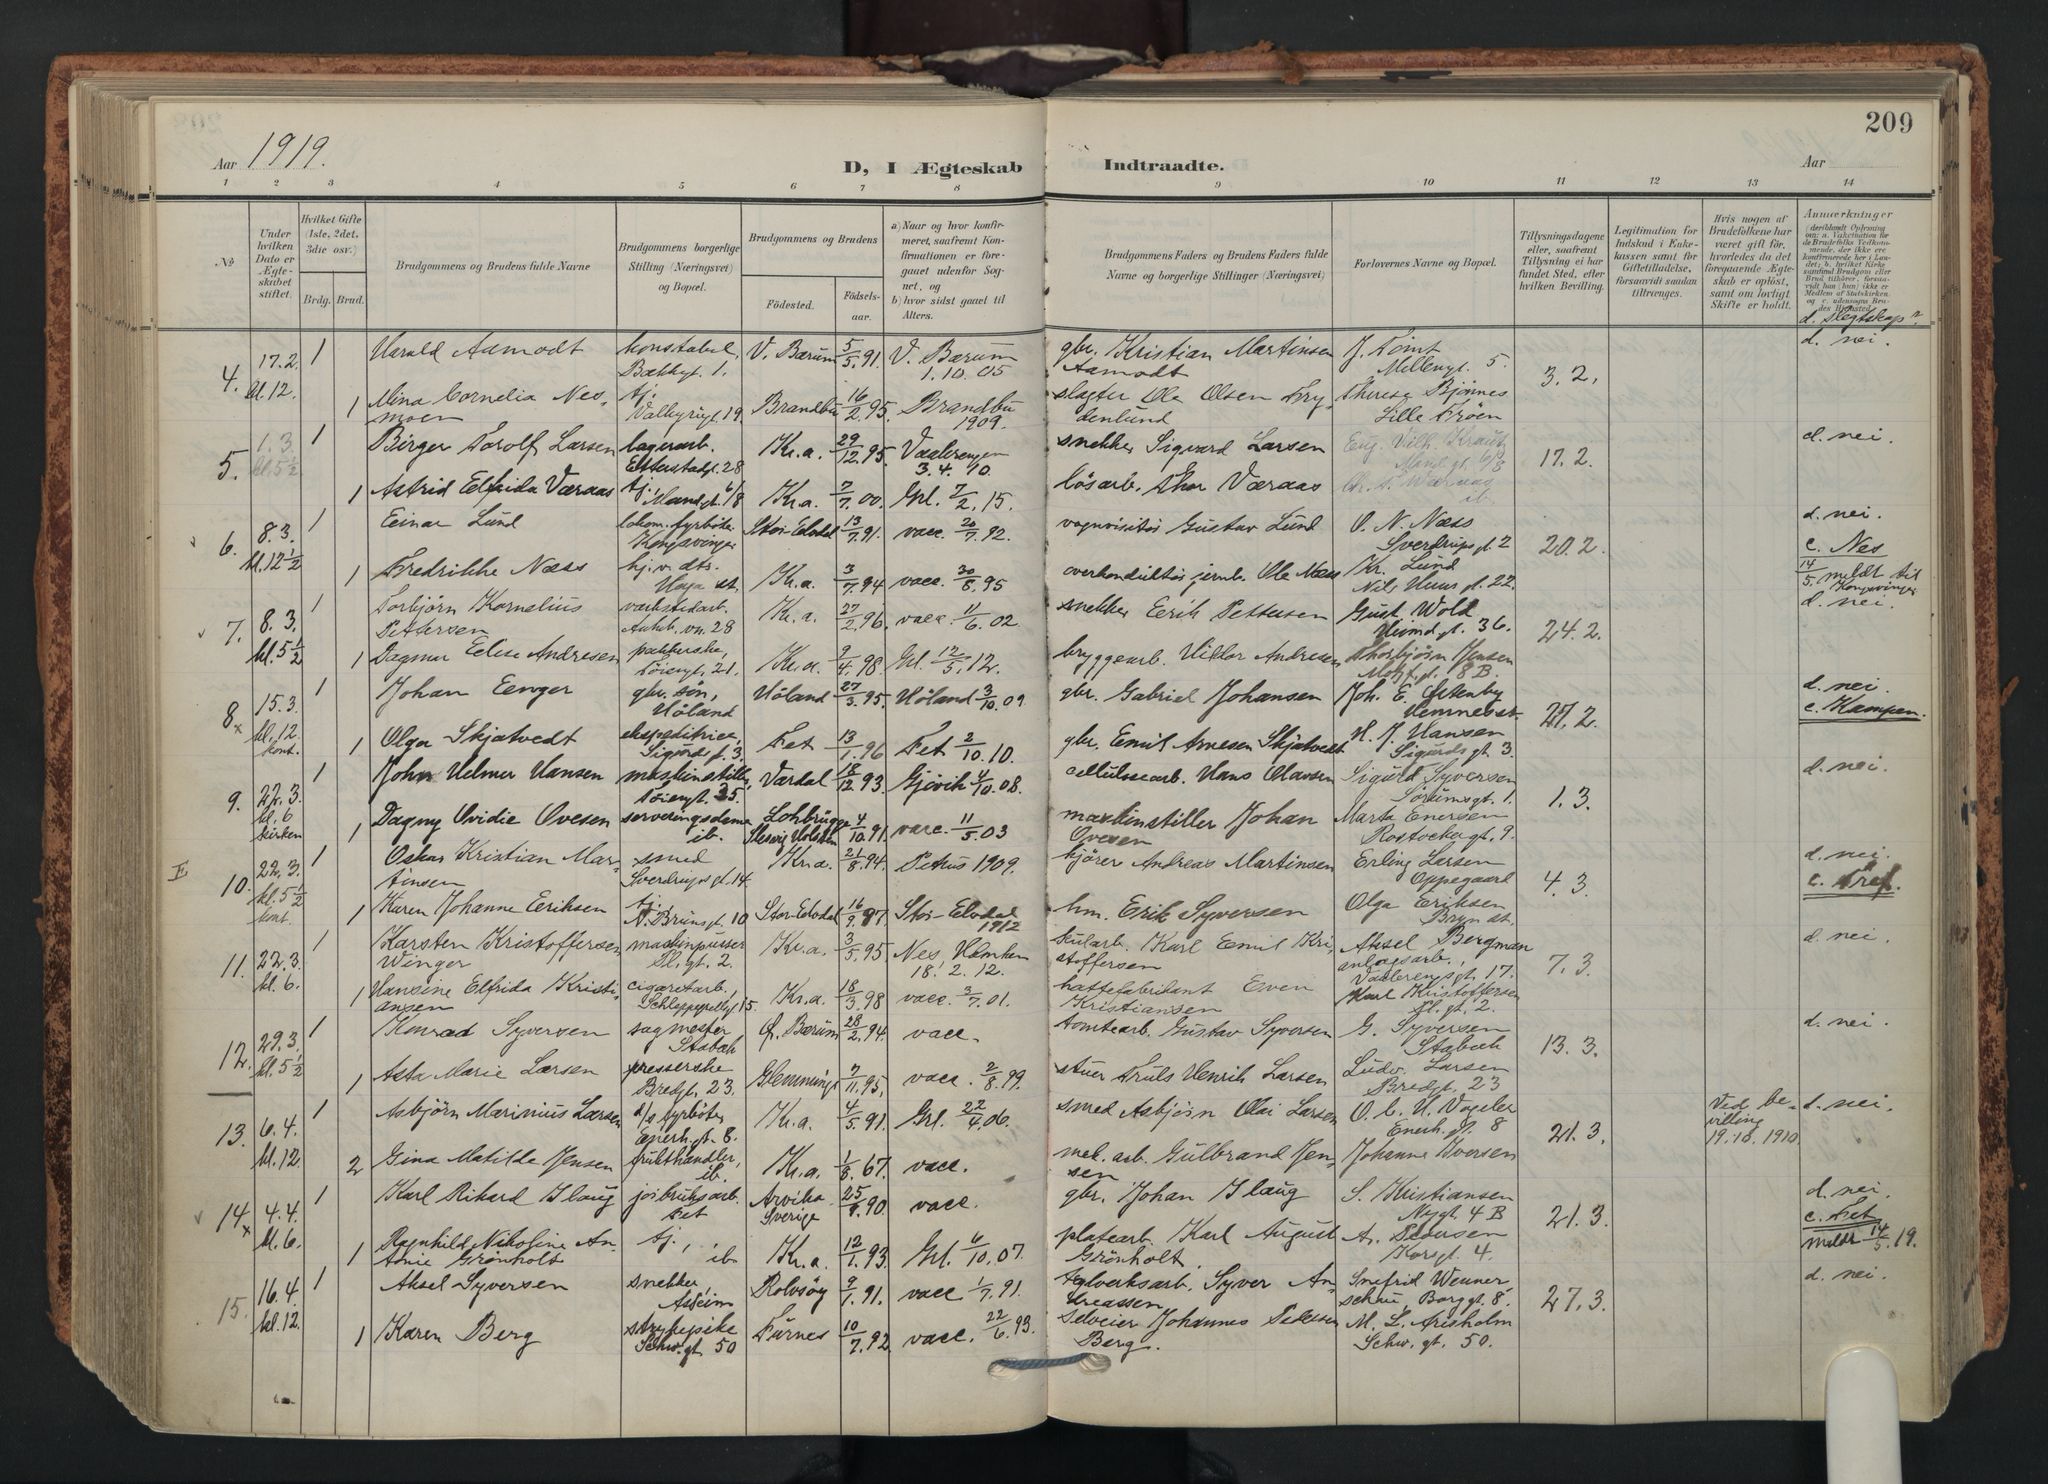 209
Aar 1919.
D, I Ægteskab Indtraadte.
Aar
1 2 3 4 5 6 7 8 9 10 11 12 13 14
№
Under hvilken Dato er Ægteskabet stiftet.
Hvilket Gifte (1ste, 2det, 3die osv.)
Brdg. Brud.
Brudgommens og Brudens fulde Navne
Brudgommens borgerlige Stilling (Næringsvei) og Bopæl.
Brudgommens og Brudens
Fødested. Fødselsaar.
a) Naar og hvor konfirmeret, saafremt Konfirmationen er foregaaet udenfor Sognet, og
b) hvor sidst gaaet til Alters.
Brudgommens Faders og Brudens Faders fulde Navne og borgerlige Stillinger (Næringsvei)
Forlovernes Navne og Bopæl.
Tillysningsdagene eller, saafremt Tillysning ei har fundet Sted, efter hvilken Bevilling.
Legitimation for Indskud i Enkekassen samt for Giftetilladelse, forsaavidt saadan tiltrænges.
Hvis nogen af Brudefolkene har været gift før, hvorledes da det foregaaende Ægteskab er opløst, samt om lovligt Skifte er holdt.
Anmærkninger
d. Slegtskap?
4. 17.2. kl. 12. 1 Harald Aamodt konstabel, Bakkegt. 1. V. Bærum 5/5 91. V. Bærum 1.10.05 gbr. Kristian Martinsen Aamodt J. Tømt Møllergt. 5. 3.2. d. nei.
1 Mina Cornelia Nesmoen tj. Valkyrigt. 19 Brandbu 16/2 95. Brandbu 1909. slagter Ole Olsen Frydenlund Therese Bjønnes Lille Frøen
5. 1.3. kl. 5½ 1 Birger Torolf Larsen lagerarb. Etterstadgt. 28 Kr.a. 29/12 95. Vaalerengen 3.4.10. snekker Sigvard Larsen 17.2. d. nei.
1 Astrid Elfrida Væraas tj. Kr.a. 7/7 00. Grl. 7/2 15. løsarb. Thor Væraas ib.
6. 8.3. kl. 12½ 1 Einar Lund lokom. fyrbøter Kongsvinger Stor-Elvdal 13/7 91. vacc. 20/7 92. vognvisitør Gustav Lund O. N. Næss Sverdrups gt. 2 20.2. d. nei. c. Nes
1 Fredrikke Næss hj.v. dtr. Haga st. Kr.a. 3/7 94 vacc. 30/8 95 overkonduktør jernb. Ole Næss Kr. Lund Nils Huus gt. 22. 14/5 meldt til Kongsvinger
7. 8.3. kl. 5½ 1 Torbjørn Kornelius Pettersen verkstedarb. Aakeb.vn. 28 Kr.a. 27/2 96. vacc. 11/6 02 snekker Erik Pettersen Gust. Wold Heimd.gt. 36. 24.2. d. nei.
1 Dagmar Elise Andresen pakkerske, Tøiengt. 21. Kr.a. 9/4 98 Grl. 12/5 12. bryggearb. Viktor Andresen Thorbjørn Jensen
8. 15.3. kl. 12 kont. 1 Johan Eenger gbr. søn, Høland Høland 27/3 95. Høland 3/10 09 gbr. Gabriel Johansen Joh. E. Østenby Hemnes st. 27.2. d. nei. c. Kampen.
1 Olga Skjatvedt ekspeditrice, Sigurds gt. 3. Fet 13/1 96 Fet 2/10 10. gbr. Emil Arnesen Skjatvedt H. J. Hansen Sigurds gt. 3
9. 22.3. kl. 6 kirken 1 John Helmer Hansen maskinstiller, Tøiengt. 35. Vardal 18/12 93. Gjøvik 4/10 08. cellulosearb. Hans Olavsen Sigurd Syversen Sørumsgt. 1. 1.3. d. nei.
1 Dagny Ovidie Ovesen serveringsdame ib. Lohbrügge Slesvig Holsten 4/10 91. vacc. 11/5 03 maskinstiller Johan Ovesen Marta Enersen Rostockergt. 9.
10. 22.3. kl. 5½ kont. 1 Oskar Kristian Martinsen smed Sverdrups gt. 14 Kr.a. 21/8 94. Petrus 1909. kjører Andreas Martinsen Erling Larsen Oppegaard 4.3. d. nei.
1 Karen Johanne Eriksen tj. N. Bruns gt. 10 Stor-Elvdal 16/9 97. Stor-Elvdal 1912 hm. Erik Syversen Olga Eriksen Bryn st.
11. 22.3. kl. 6. 1 Karsten Kristoffersen Winger maskinpusser Pl.gt. 2. Kr.a. 3/5 95 Nes, Hamhen 18.2.12. kularb. Karl Emil Kristoffersen Aksel Bergman anlægsarb., Vaalerengsgt. 17. 7.3. d. nei.
1 Hansine Elfrida Kristiansen cigaretarb., Schleppegrellsgt. 15. Kr.a. 18/3 98 vacc. 3/7 01. hattefabrikant Even Kristiansen Karl Kristoffersen Pl.gt. 2.
12. 29.3. kl. 5½ 1 Konrad Syversen sagmester Stabæk Ø. Bærum 28/2 94. vacc. tomtearb. Gustav Syversen G. Syversen Stabæk 13.3. d. nei.
1 Asta Marie Larsen presserske Bredgt. 23 Glemminge 7/11 95. vacc. 2/8 99. stuer Truls Henrik Larsen Ludv. Larsen Bredgt. 23
13. 6.4. kl. 12 1 Asbjørn Marinius Larsen d/s fyrbøter Enerh.gt. 8. Kr.a. 4/5 91. Grl. 22/4 06. smed Asbjørn Olai Larsen O. C. H. Vogeler Enerh.gt. 8 21.3. Ved bevilling 19.10.1910. d. nei.
2 Gina Matilde Jensen frukthandler, ib. Kr.a. 1/8 67. vacc. mek. arb. Gulbrand Jensen Johanne Iversen
14. 4.4. kl. 6. 1 Karl Rikard Ilaug jorbruksarb. Fet Arvika Sverige 25/9 90. vacc. gbr. Johan Ilaug S. Kristiansen Nygt. 4 B 21.3. d. nei. c. Fet
1 Ragnhild Nikoline Antonie Grønholt tj., ib. Kr.a. 12/1 93. Grl. 6/10 07. platearb. Karl August Grønholt. A. Pedersen Korsgt. 4. meldt 14/5 19.
15. 16.4. kl. 12. 1 Aksel Syversen snekker, Askim Rolvsøy 9/1 91. vacc 1/7 91. teglverksarb. Syver Andreassen Snefrid Wennerschou, Borggt. 8. 27.3. d. nei.
1 Karen Berg strykepike Schw.gt. 50 Furnes 10/7 92. vacc. 22/6 93. selveier Johannes Pedersen Berg. M. L. Arisholm Schw.gt. 50.